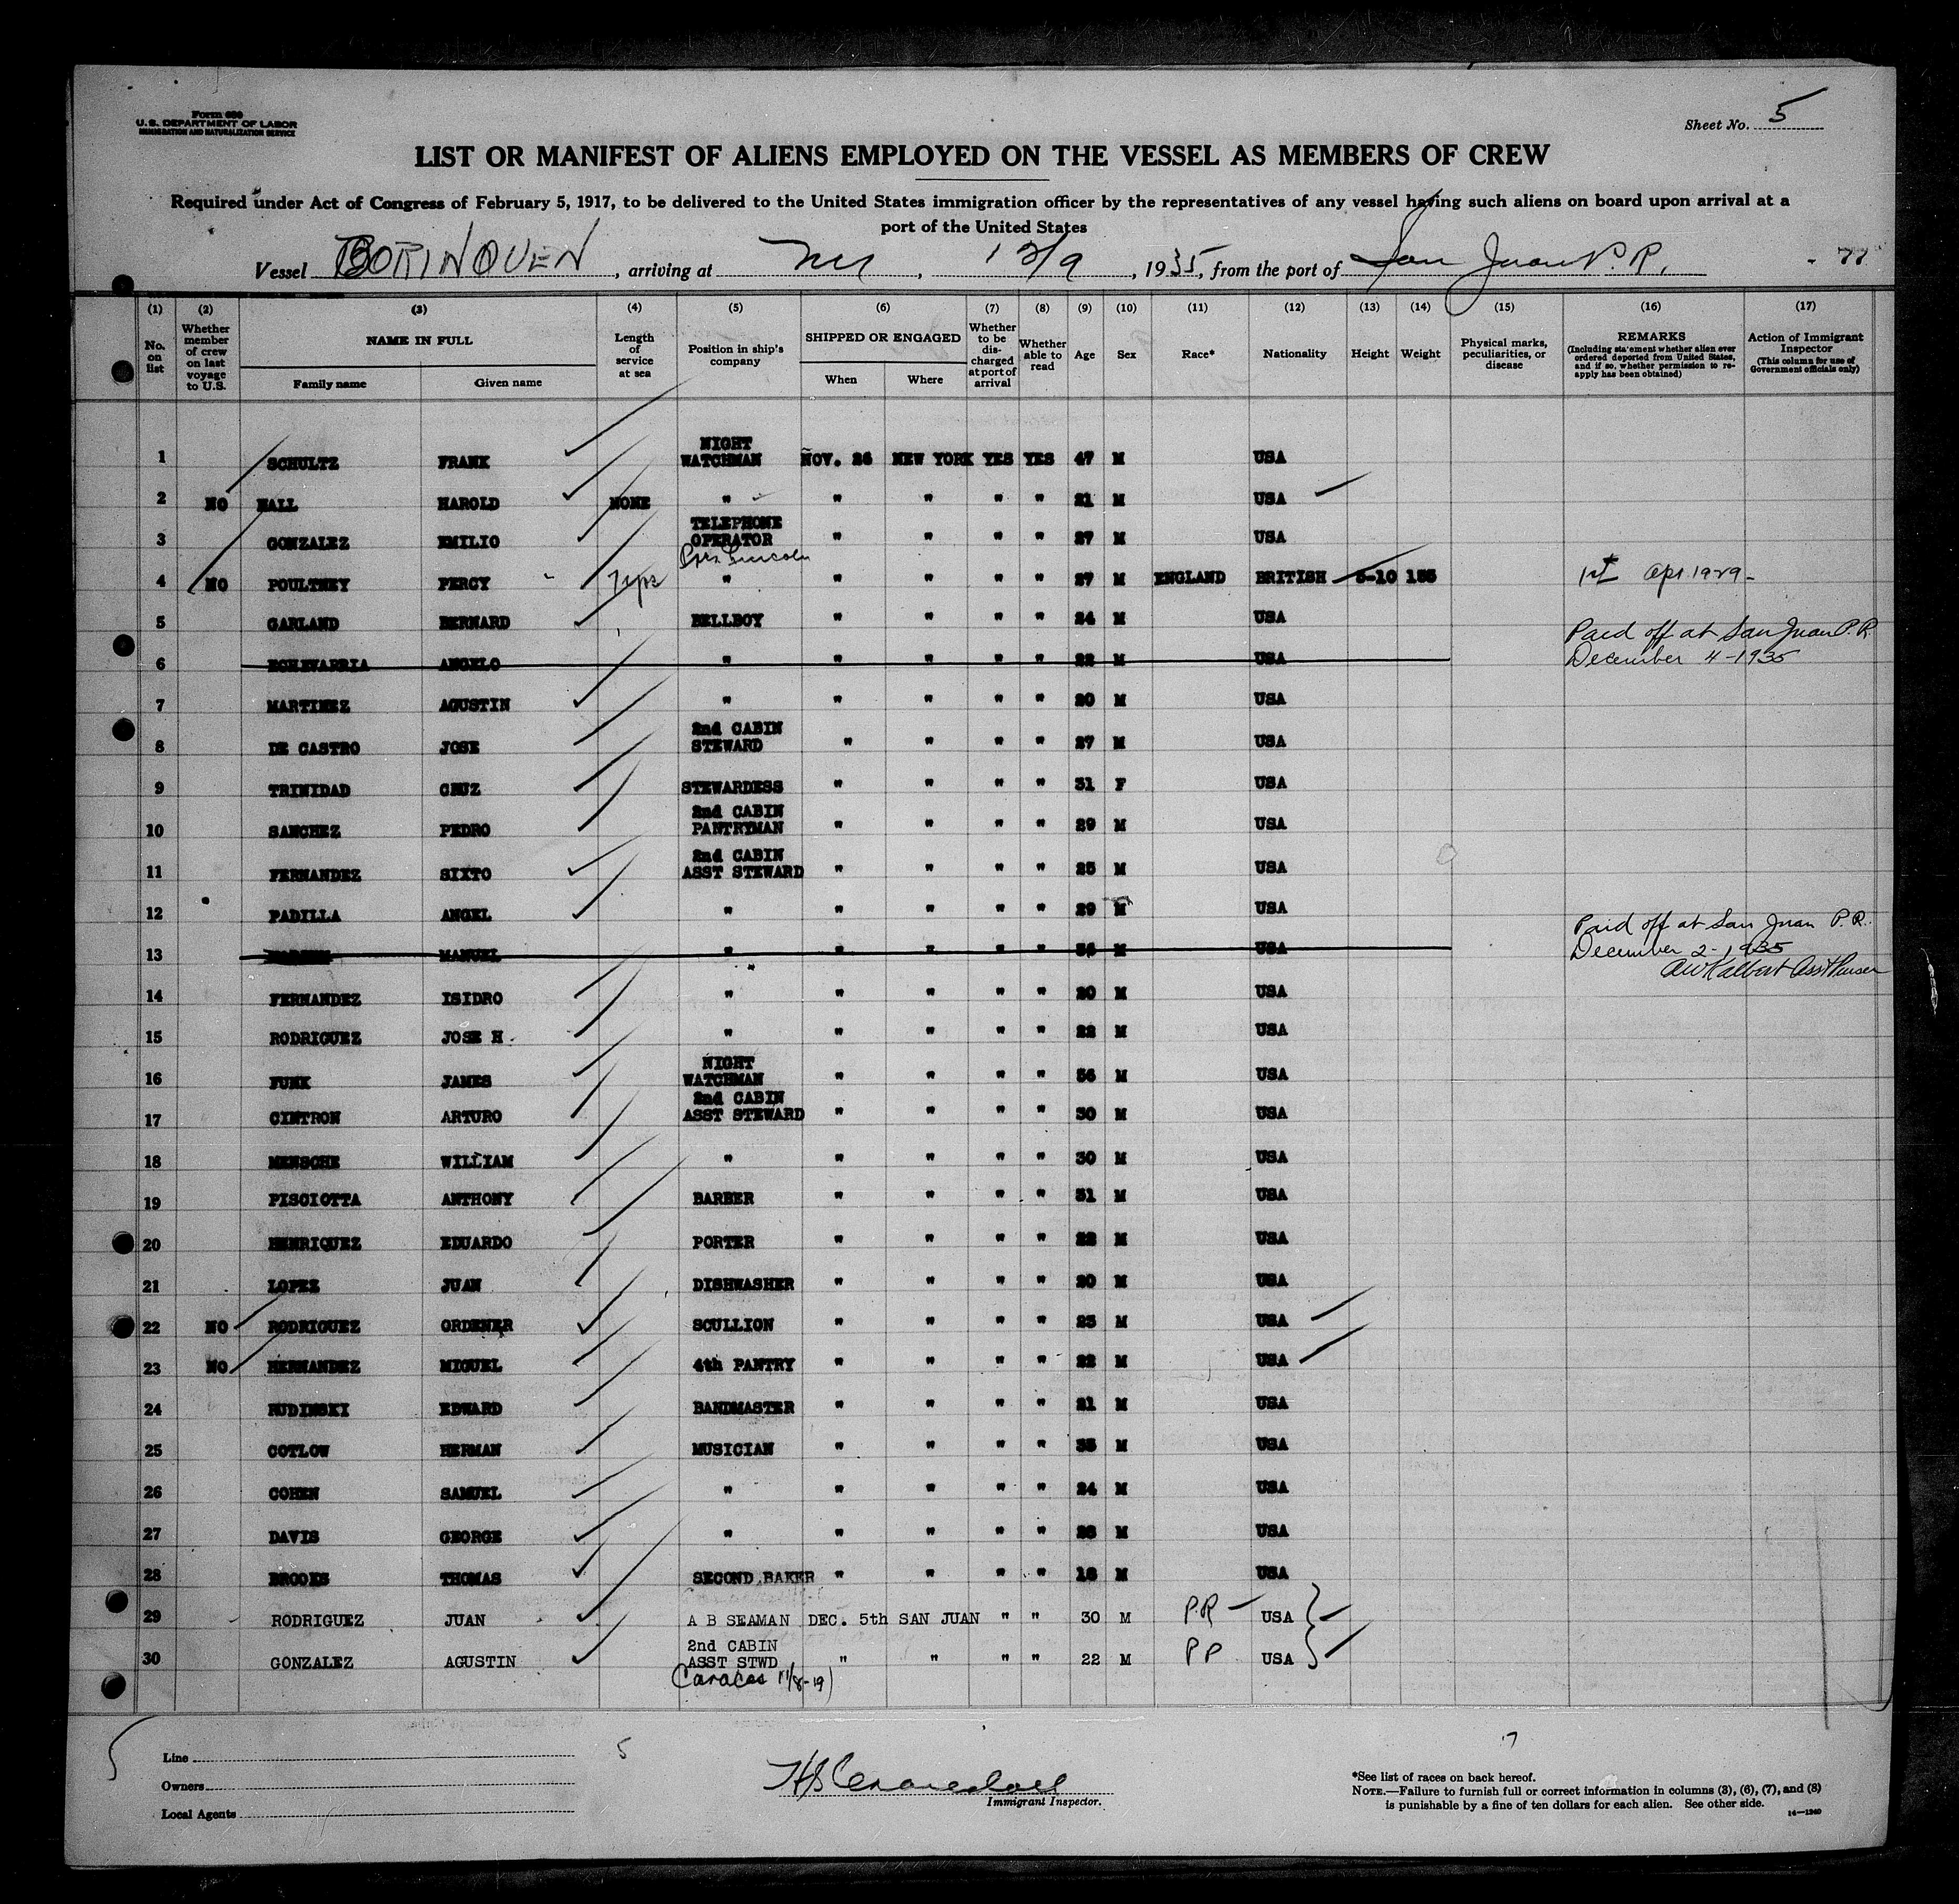 Form 680
U. S. DEPARTMENT OF LABOR
IMMIGRATION AND NATURALIZATION SERVICE
Sheet No. 5
LIST OR MANIFEST OF ALIENS EMPLOYED ON THE VESSEL AS MEMBERS OF CREW
Required under Act of Congress of February 5, 1917, to be delivered to the United States immigration officer by the representatives of any vessel having such aliens on board upon arrival at a
port of the United States
Vessel BORINQUEN, arriving at NY, 12/9, 1935, from the port of San Juan P. R. - 77
(1) (2) (3) (4) (5) (6) (7) (8) (9) (10) (11) (12) (13) (14) (15) (16) (17)
No. on list
Whether member of crew on last voyage to U.S.
NAME IN FULL
Family name Given name
Length of service at sea
Position in ship's company
SHIPPED OR ENGAGED
When Where
Whether to be discharged at port of arrival
Whether able to read
Age
Sex
Race*
Nationality
Height
Weight
Physical marks, peculiarities, or disease
REMARKS
(Including statement whether alien ever ordered deported from United States, and if so, whether permission to re-apply has been obtained)
Action of Immigrant Inspector
(This column for use of Government officials only)
1 SCHULTZ FRANK NIGHT WATCHMAN NOV. 26 NEW YORK YES YES 47 M USA
2 NO HALL HAROLD NONE " " " " " 21 M USA
3 GONZALEZ EMILIO TELEPHONE OPERATOR " " " " 27 M USA
Pres Lincoln
4 NO POULTNEY PERCY 7 yrs " " " " " 27 M ENGLAND BRITISH 5-10 155 1st Apr 1929-
5 GARLAND BERNARD BELLBOY " " " " 24 M USA
Paid off at San Juan P.R.
6 ECHEVARRIA ANGELO " " " " " 22 M USA December 4-1935
7 MARTINEZ AGUSTIN " " " " " 20 M USA
8 DE CASTRO JOSE 2nd CABIN STEWARD " " " " 27 M USA
9 TRINIDAD CRUZ STEWARDESS " " " " 31 F USA
10 SANCHEZ PEDRO 2nd CABIN PANTRYMAN " " " " 29 M USA
11 FERNANDEZ SIXTO 2nd CABIN ASST STEWARD " " " " 25 M USA
12 PADILLA ANGEL " " " " " 29 M USA
Paid off at San Juan P.R.
13 MANUEL " " " " " M USA December 2-1935
Asst Purser
14 FERNANDEZ ISIDRO " " " " " 20 M USA
15 RODRIGUEZ JOSE H. " " " " " 22 M USA
16 FUNK JAMES NIGHT WATCHMAN " " " " 36 M USA
17 CINTRON ARTURO 2nd CABIN ASST STEWARD " " " " 30 M USA
18 MENSCHE WILLIAM " " " " " 30 M USA
19 PISCIOTTA ANTHONY BARBER " " " " 31 M USA
20 HENRIQUEZ EDUARDO PORTER " " " " 22 M USA
21 LOPEZ JUAN DISHWASHER " " " " 20 M USA
22 NO RODRIGUEZ ORDENER SCULLION " " " " 23 M USA
23 NO HERNANDEZ MIGUEL 4th PANTRY " " " " 22 M USA
24 RUDINSKI EDWARD BANDMASTER " " " " 21 M USA
25 COTLOW HERMAN MUSICIAN " " " " 33 M USA
26 COHEN SAMUEL " " " " " 24 M USA
27 DAVIS GEORGE " " " " " M USA
28 BROOKS THOMAS SECOND BAKER " " " " 18 M USA
29 RODRIGUEZ JUAN A B SEAMAN DEC. 5th SAN JUAN " " 30 M P.R - USA
30 GONZALEZ AGUSTIN 2nd CABIN ASST STWD " " " " 22 M P P USA
(Caracas 11/8-19)
Line
Owners
Local Agents
5
Immigrant Inspector.
17
*See list of races on back hereof.
NOTE.—Failure to furnish full or correct information in columns (3), (6), (7), and (8)
is punishable by a fine of ten dollars for each alien. See other side.
14—1240